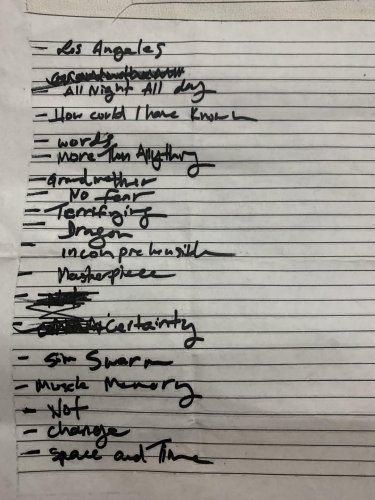 - Los Angeles
All Night All day
- How could I have Known
- words
- More Than Anything
- Grandmother
- No fear
- Terrifying
- Dragon
- incomprehensible
- Masterpiece
- Certainty
- Sim Swarm
- Muscle Memory
- Not
- change
- space and Time